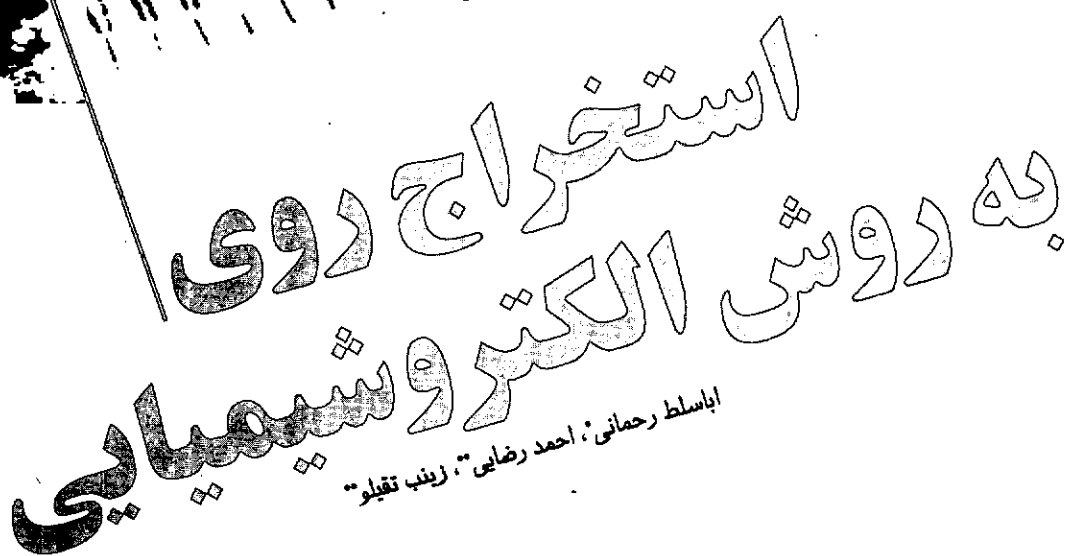 استخراج روی
به روش الکتروشیمیایی
اباسلط رحمانی*، احمد رضایی**، زینب تقیلو**